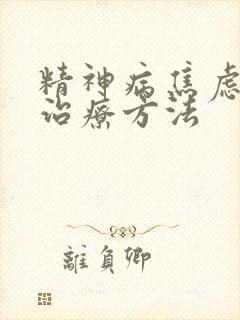 精神病焦虑
治疗方法
離負卿